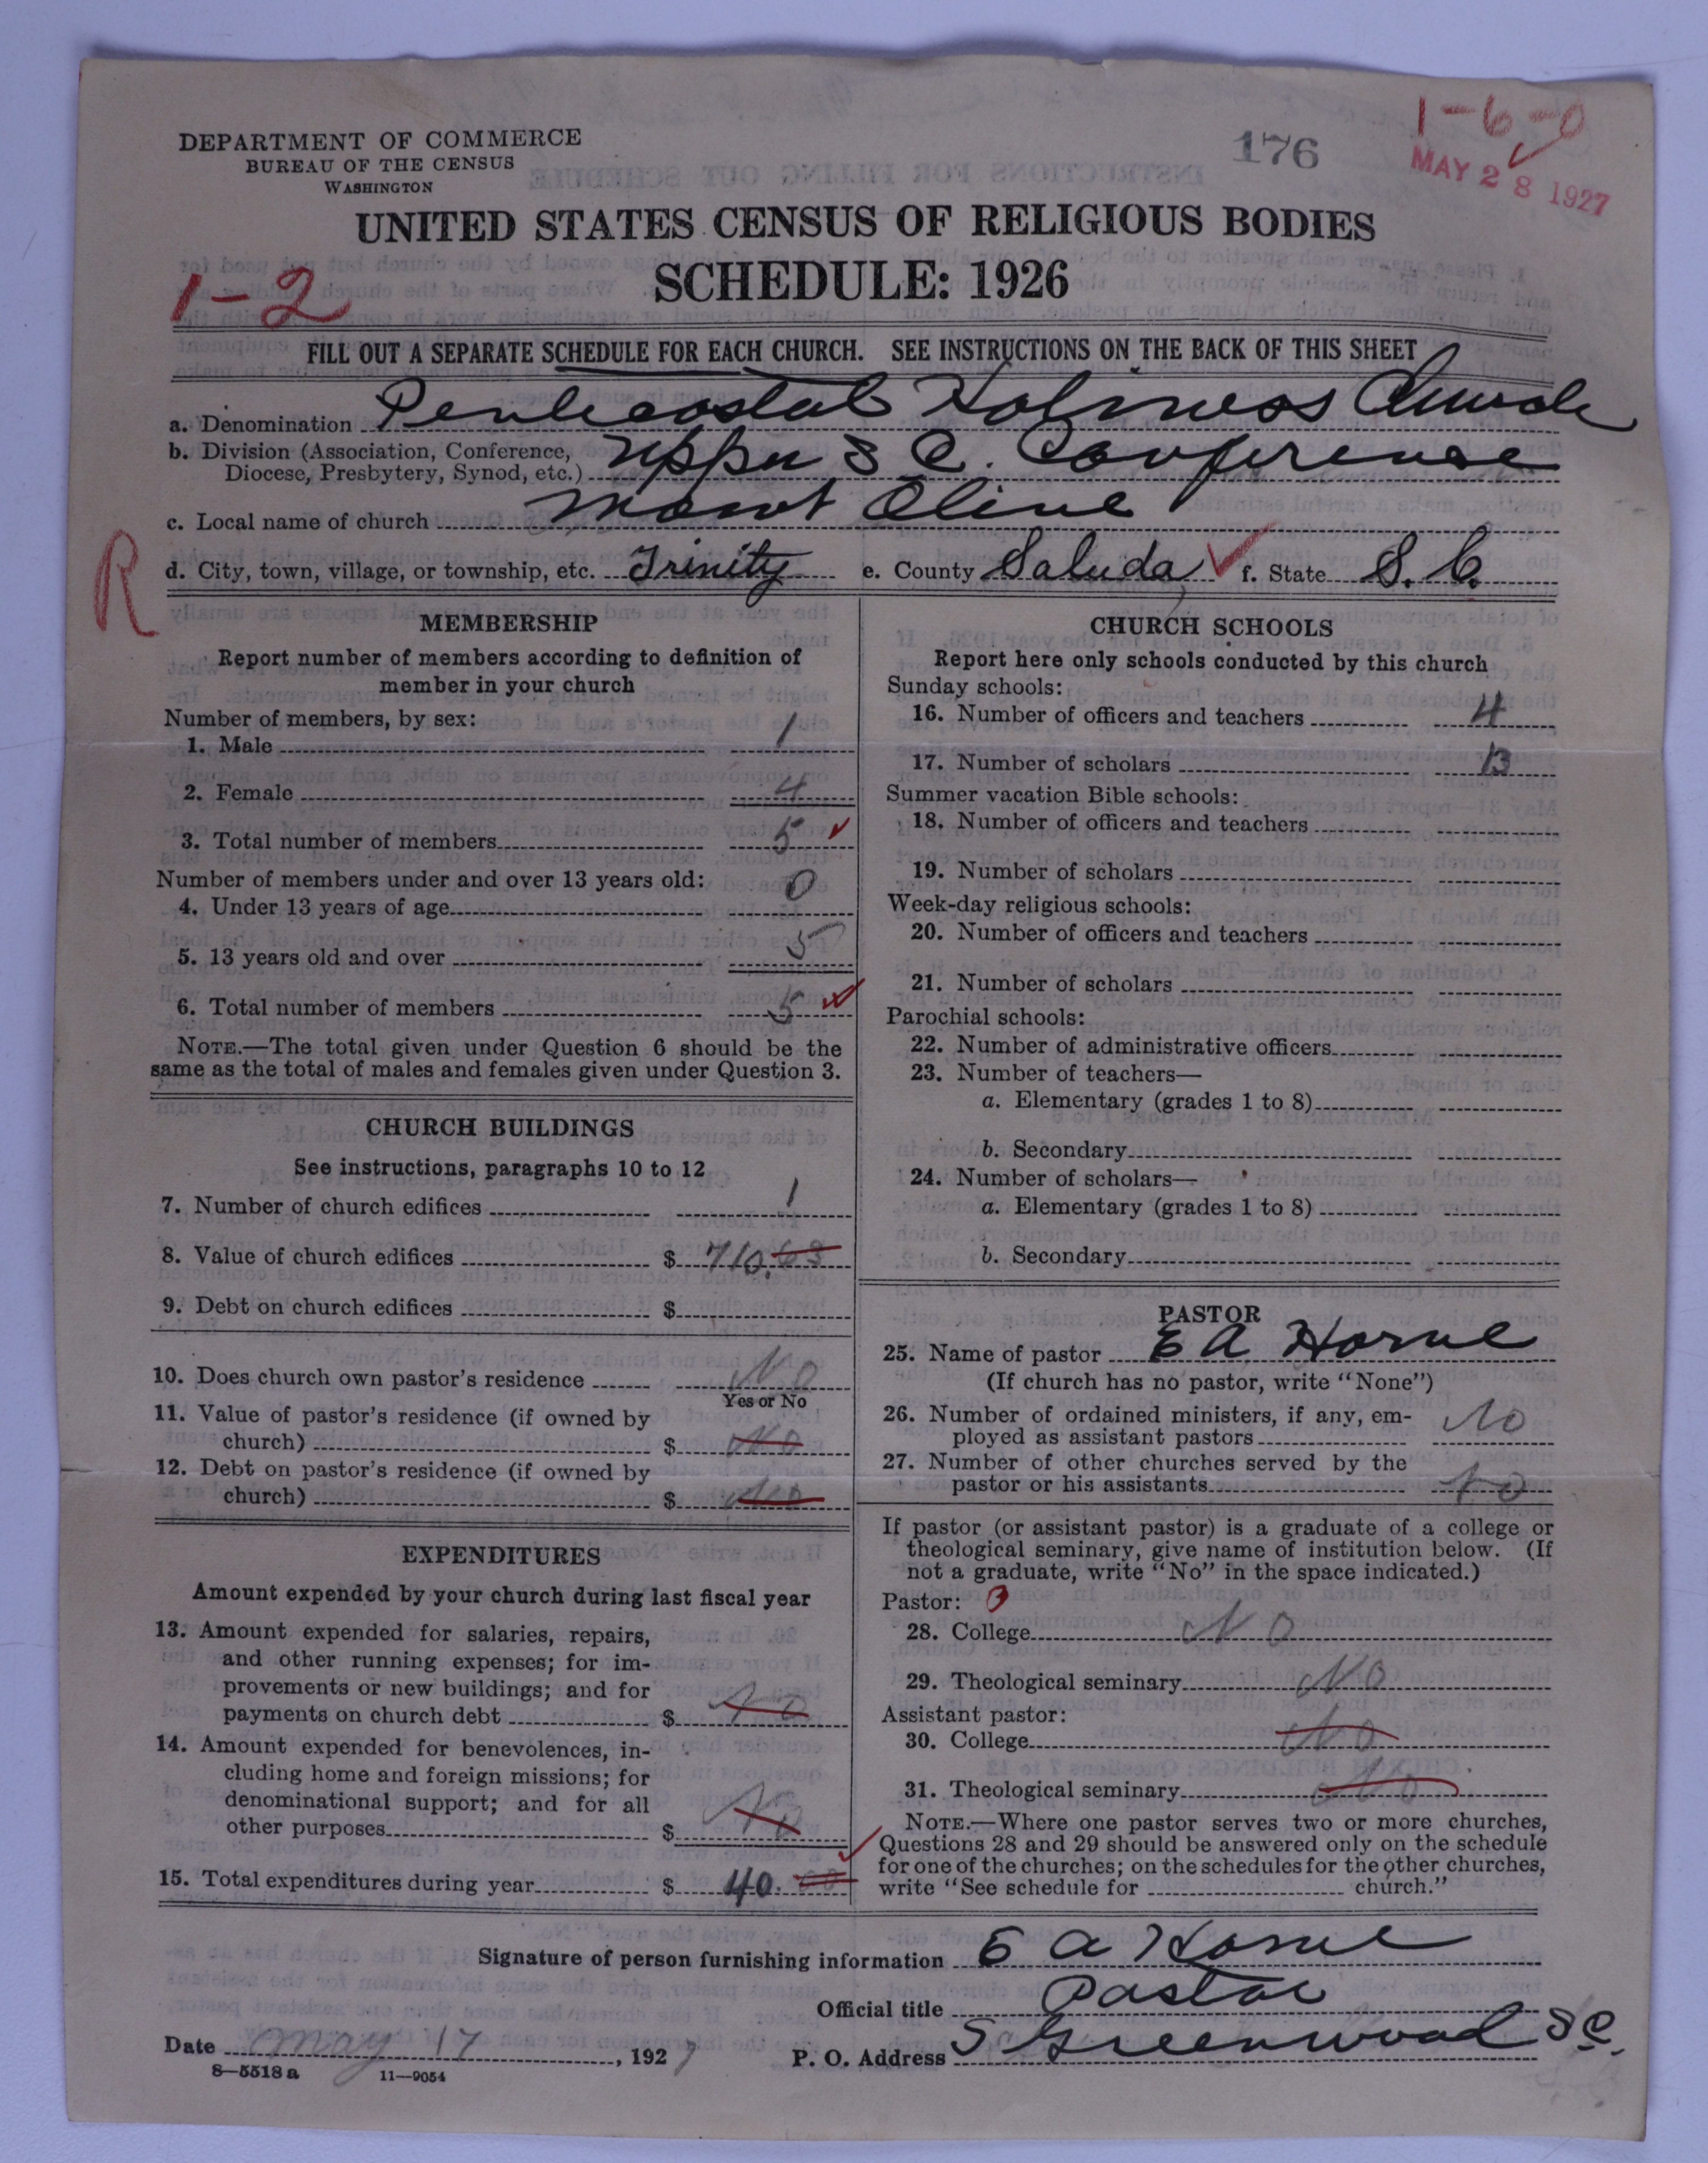 1-6-0
176
MAY 28 1927
DEPARTMENT OF COMMERCE
BUREAU OF THE CENSUS
WASHINGTON
UNITED STATES CENSUS OF RELIGIOUS BODIES
SCHEDULE: 1926
1-2
FILL OUT A SEPARATE SCHEDULE FOR EACH CHURCH. SEE INSTRUCTIONS ON THE BACK OF THIS SHEET
a. Denomination Pentecostal Holiness Church
b. Division (Association, Conference,
Diocese, Presbytery, Synod, etc.) Upper S C. Conference
c. Local name of church Mount Olive
R
d. City, town, village, or township, etc. Trinity e. County Saluda f. State S. C.
MEMBERSHIP
Report number of members according to definition of
member in your church
Number of members, by sex:
1. Male 1
2. Female 4
3. Total number of members 5
Number of members under and over 13 years old:
4. Under 13 years of age 0
5. 13 years old and over 5
6. Total number of members 5
NOTE.—The total given under Question 6 should be the
same as the total of males and females given under Question 3.
CHURCH BUILDINGS
See instructions, paragraphs 10 to 12
7. Number of church edifices 1
8. Value of church edifices $ 710.63
9. Debt on church edifices $
10. Does church own pastor's residence No
Yes or No
11. Value of pastor's residence (if owned by
church) $ No
12. Debt on pastor's residence (if owned by
church) $ No
EXPENDITURES
Amount expended by your church during last fiscal year
13. Amount expended for salaries, repairs,
and other running expenses; for im-
provements or new buildings; and for
payments on church debt $ No
14. Amount expended for benevolences, in-
cluding home and foreign missions; for
denominational support; and for all
other purposes $ No
15. Total expenditures during year $ 40. 00
CHURCH SCHOOLS
Report here only schools conducted by this church
Sunday schools:
16. Number of officers and teachers 4
17. Number of scholars 13
Summer vacation Bible schools:
18. Number of officers and teachers
19. Number of scholars
Week-day religious schools:
20. Number of officers and teachers
21. Number of scholars
Parochial schools:
22. Number of administrative officers
23. Number of teachers—
a. Elementary (grades 1 to 8)
b. Secondary
24. Number of scholars—
a. Elementary (grades 1 to 8)
b. Secondary
PASTOR
25. Name of pastor E A Horne
(If church has no pastor, write "None")
26. Number of ordained ministers, if any, em-
ployed as assistant pastors No
27. Number of other churches served by the
pastor or his assistants No
If pastor (or assistant pastor) is a graduate of a college or
theological seminary, give name of institution below. (If
not a graduate, write "No" in the space indicated.)
Pastor:
28. College No
29. Theological seminary No
Assistant pastor:
30. College No
31. Theological seminary No
NOTE.—Where one pastor serves two or more churches,
Questions 28 and 29 should be answered only on the schedule
for one of the churches; on the schedules for the other churches,
write "See schedule for church."
Signature of person furnishing information E A Horne
Official title Pastor
Date May 17, 1927
P. O. Address S Greenwood S C.
8—5518 a 11—9054